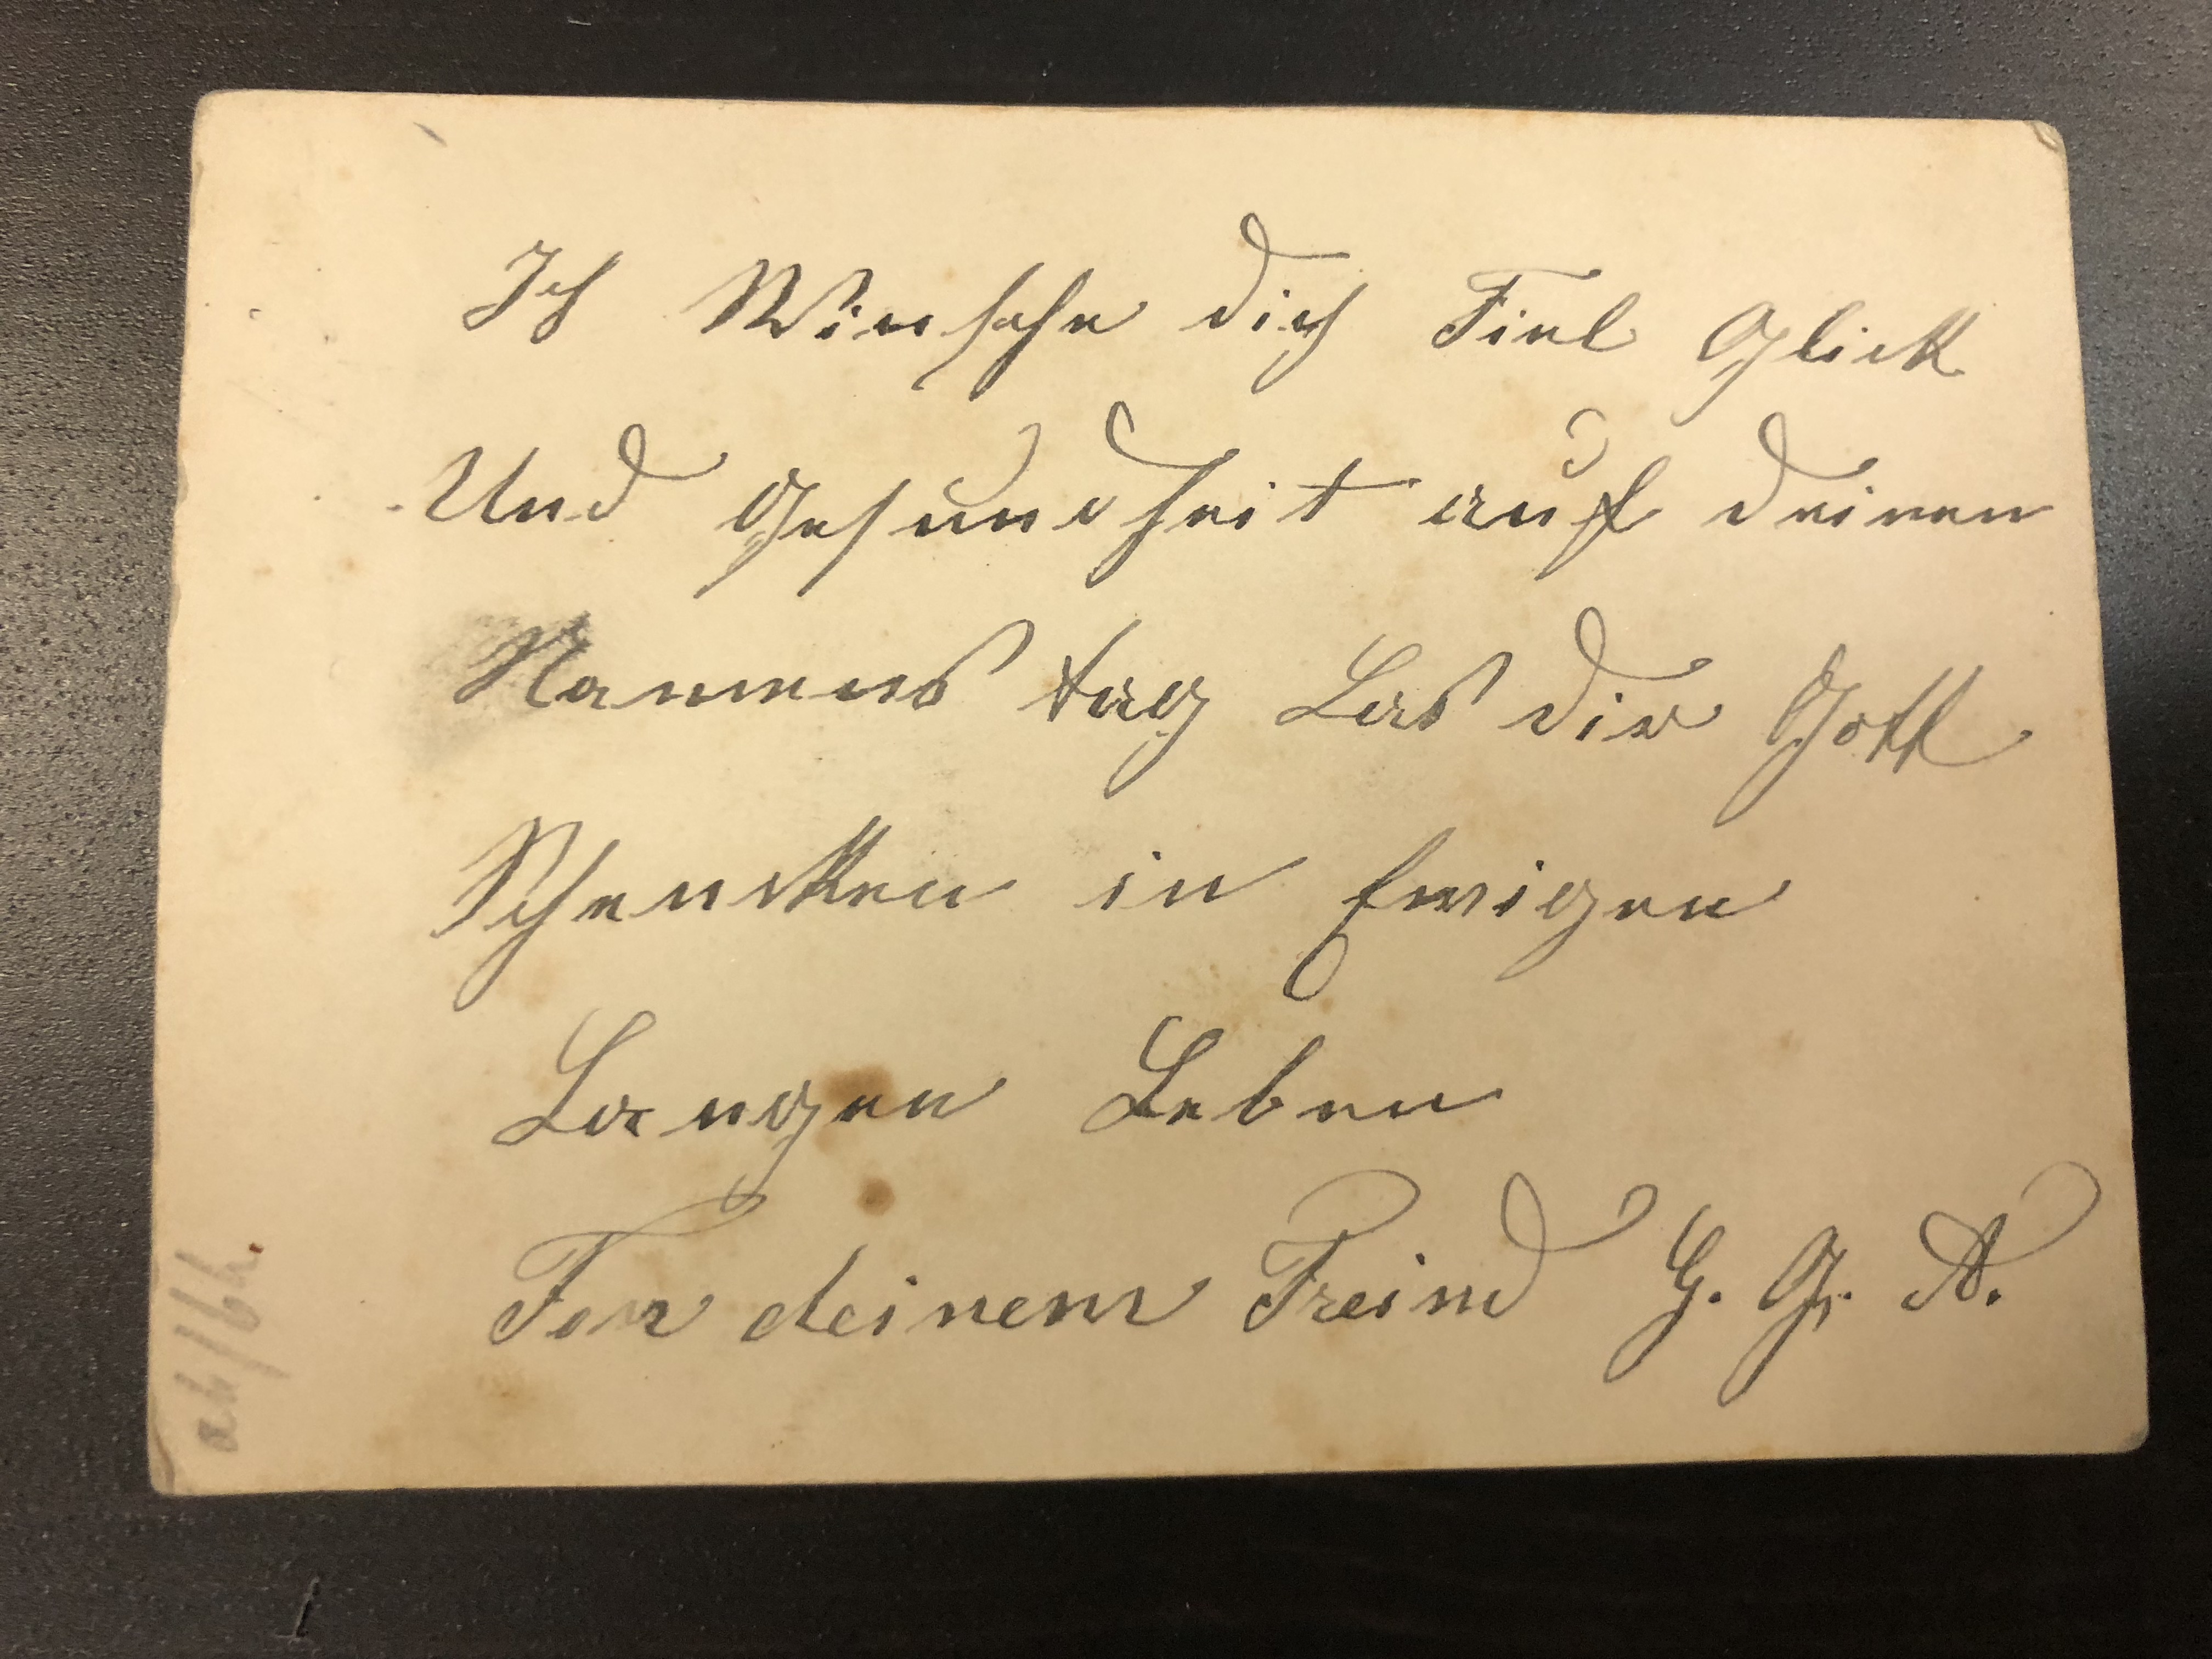 Ich Winsche dich Fiel Glick
Und Gesundheit auf deinen
Nammens tag Las dir Gott
Schencken in Ewigen
Langen Leben
Fon deinem Freind G. G. A.